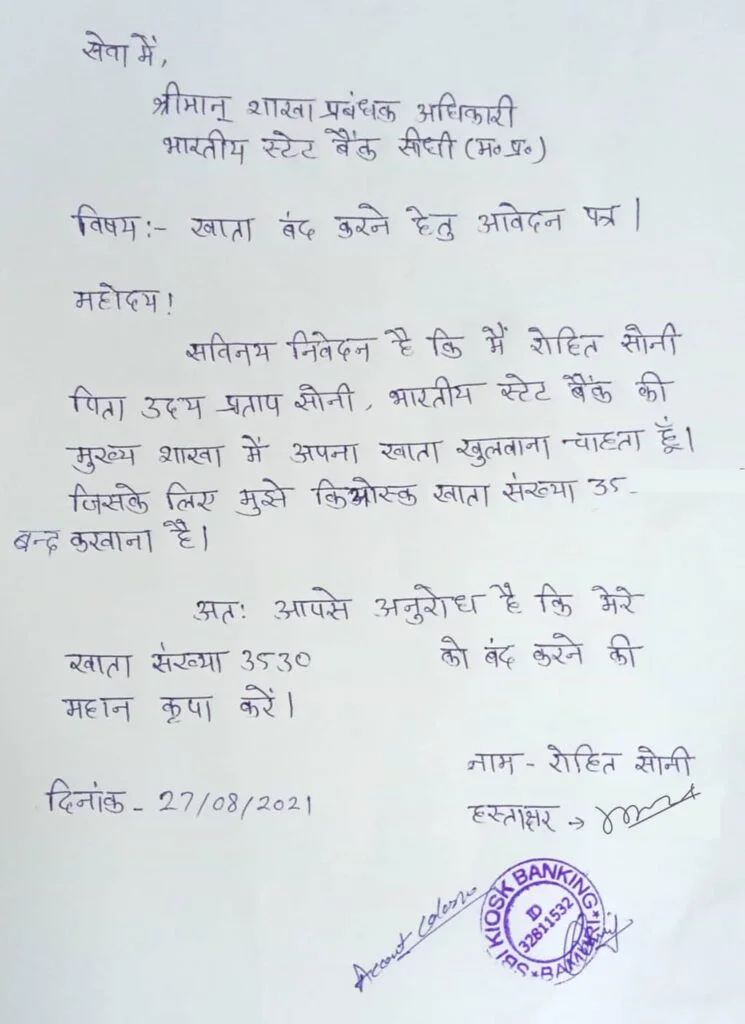 सेवा में,
श्रीमान् शाखा प्रबंधक अधिकारी
भारतीय स्टेट बैंक सीधी (म॰प्र॰)
विषय:- खाता बंद करने हेतु आवेदन पत्र।
महोदय!
सविनय निवेदन है कि मैं रोहित सोनी
पिता उदय प्रताप सोनी, भारतीय स्टेट बैंक की
मुख्य शाखा में अपना खाता खुलवाना चाहता हूँ।
जिसके लिए मुझे किओस्क खाता संख्या 35-
बन्द करवाना है।
अत: आपसे अनुरोध है कि मेरे
खाता संख्या 3530 को बंद करने की
महान कृपा करें।
नाम - रोहित सोनी
दिनांक - 27/08/2021
हस्ताक्षर →
Account
SBI KIOSK BANKING
ID
32811532